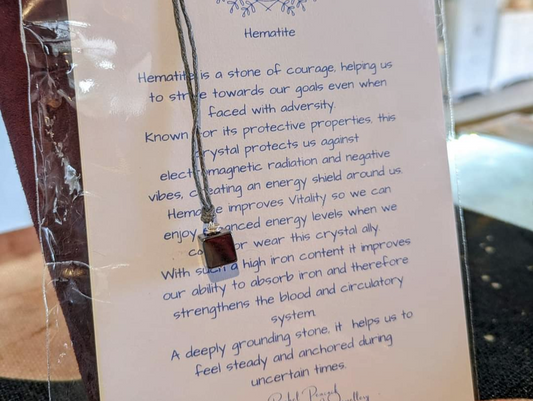 Hematite
Hematite is a stone of courage, helping us
to strive towards our goals even when
faced with adversity.
Known for its protective properties, this
crystal protects us against
electromagnetic radiation and negative
vibes, creating an energy shield around us.
Hematite improves Vitality so we can
enjoy enhanced energy levels when we
carry or wear this crystal ally.
With such a high iron content it improves
our ability to absorb iron and therefore
strengthens the blood and circulatory
system.
A deeply grounding stone, it helps us to
feel steady and anchored during
uncertain times.